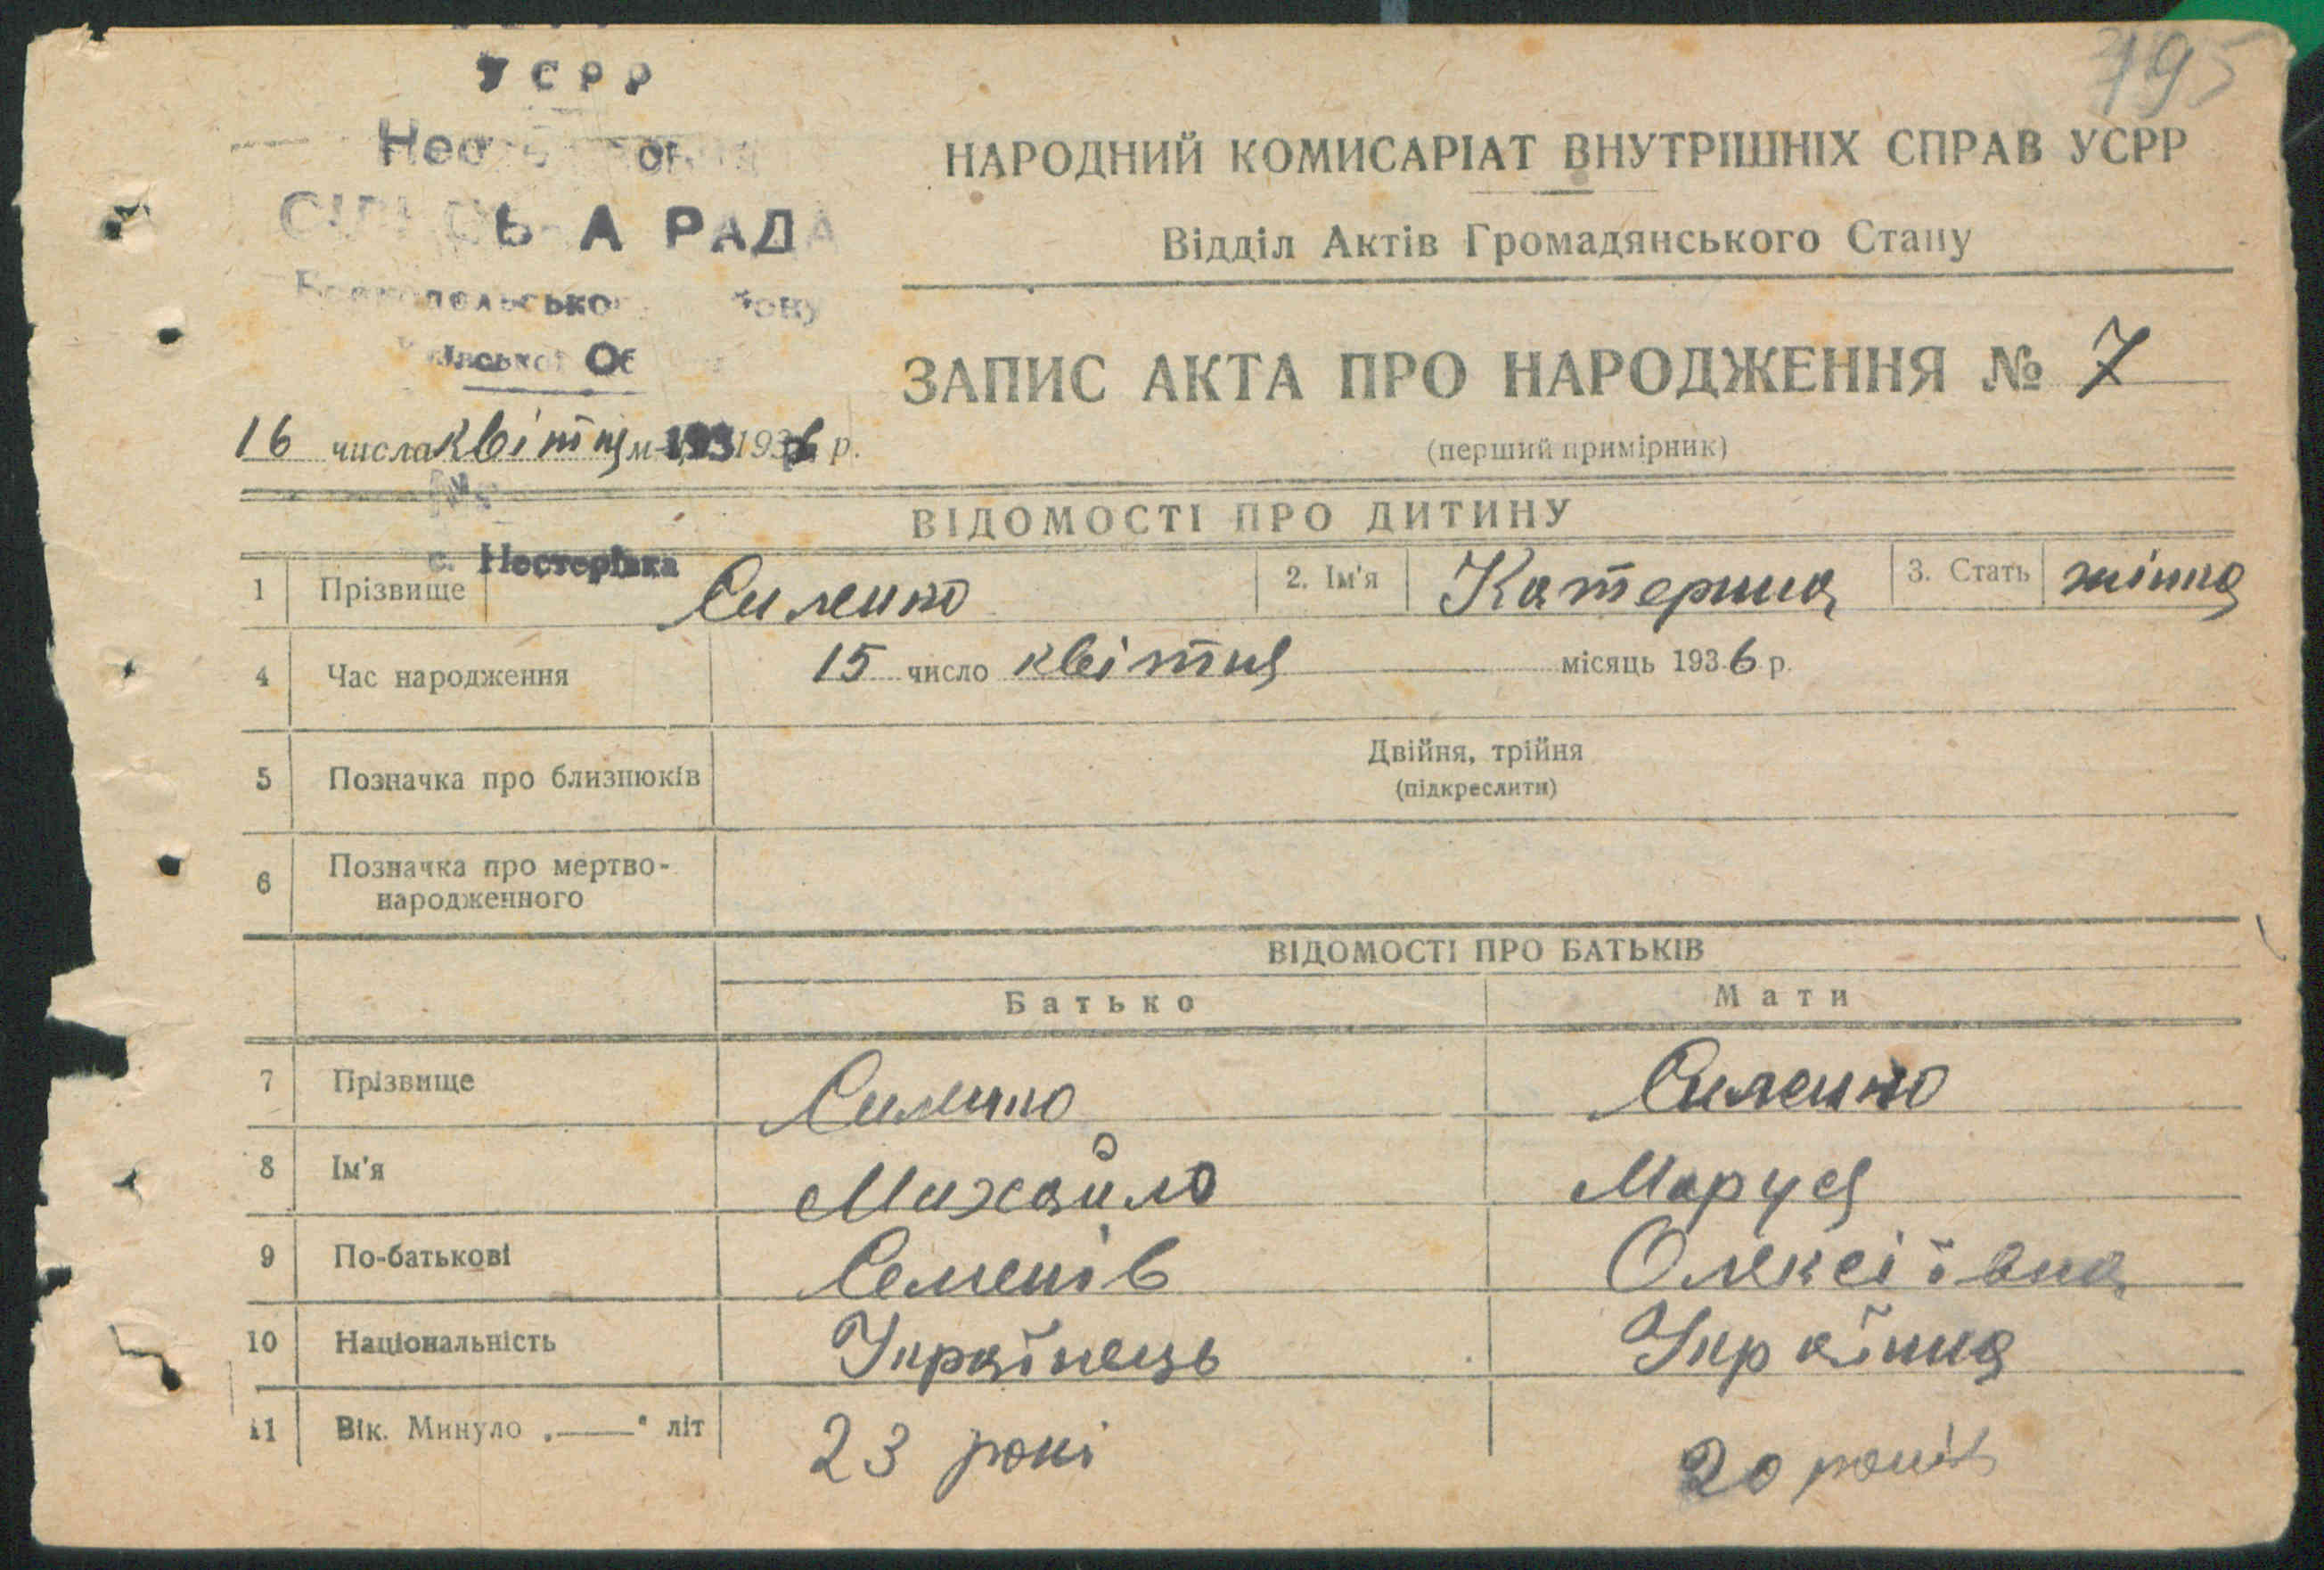 УСРР
НАРОДНИЙ КОМИСАРІАТ ВНУТРІШНІХ СПРАВ УСРР
РАДА
Відділ Актів Громадянського Стану
ЗАПИС АКТА ПРО НАРОДЖЕННЯ № 7
16 числа квітця м-ця 1936 р.
(перший примірник)
ВІДОМОСТІ ПРО ДИТИНУ
с. Нестерівка
1 Прізвище Силенко 2. Ім'я Катерина 3. Стать жінка
4 Час народження 15 число квітня місяць 1936 р.
5 Позначка про близнюків Двійня, трійня
(підкреслити)
6 Позначка про мертво-
народженного
ВІДОМОСТІ ПРО БАТЬКІВ
Батько Мати
7 Прізвище Силенко Силенко
8 Ім'я Михайло Маруся
9 По-батькові Семенів Олексіївна
10 Національність Українець Україинка
11 Вік. Минуло „——" літ 23 рокі 20 років